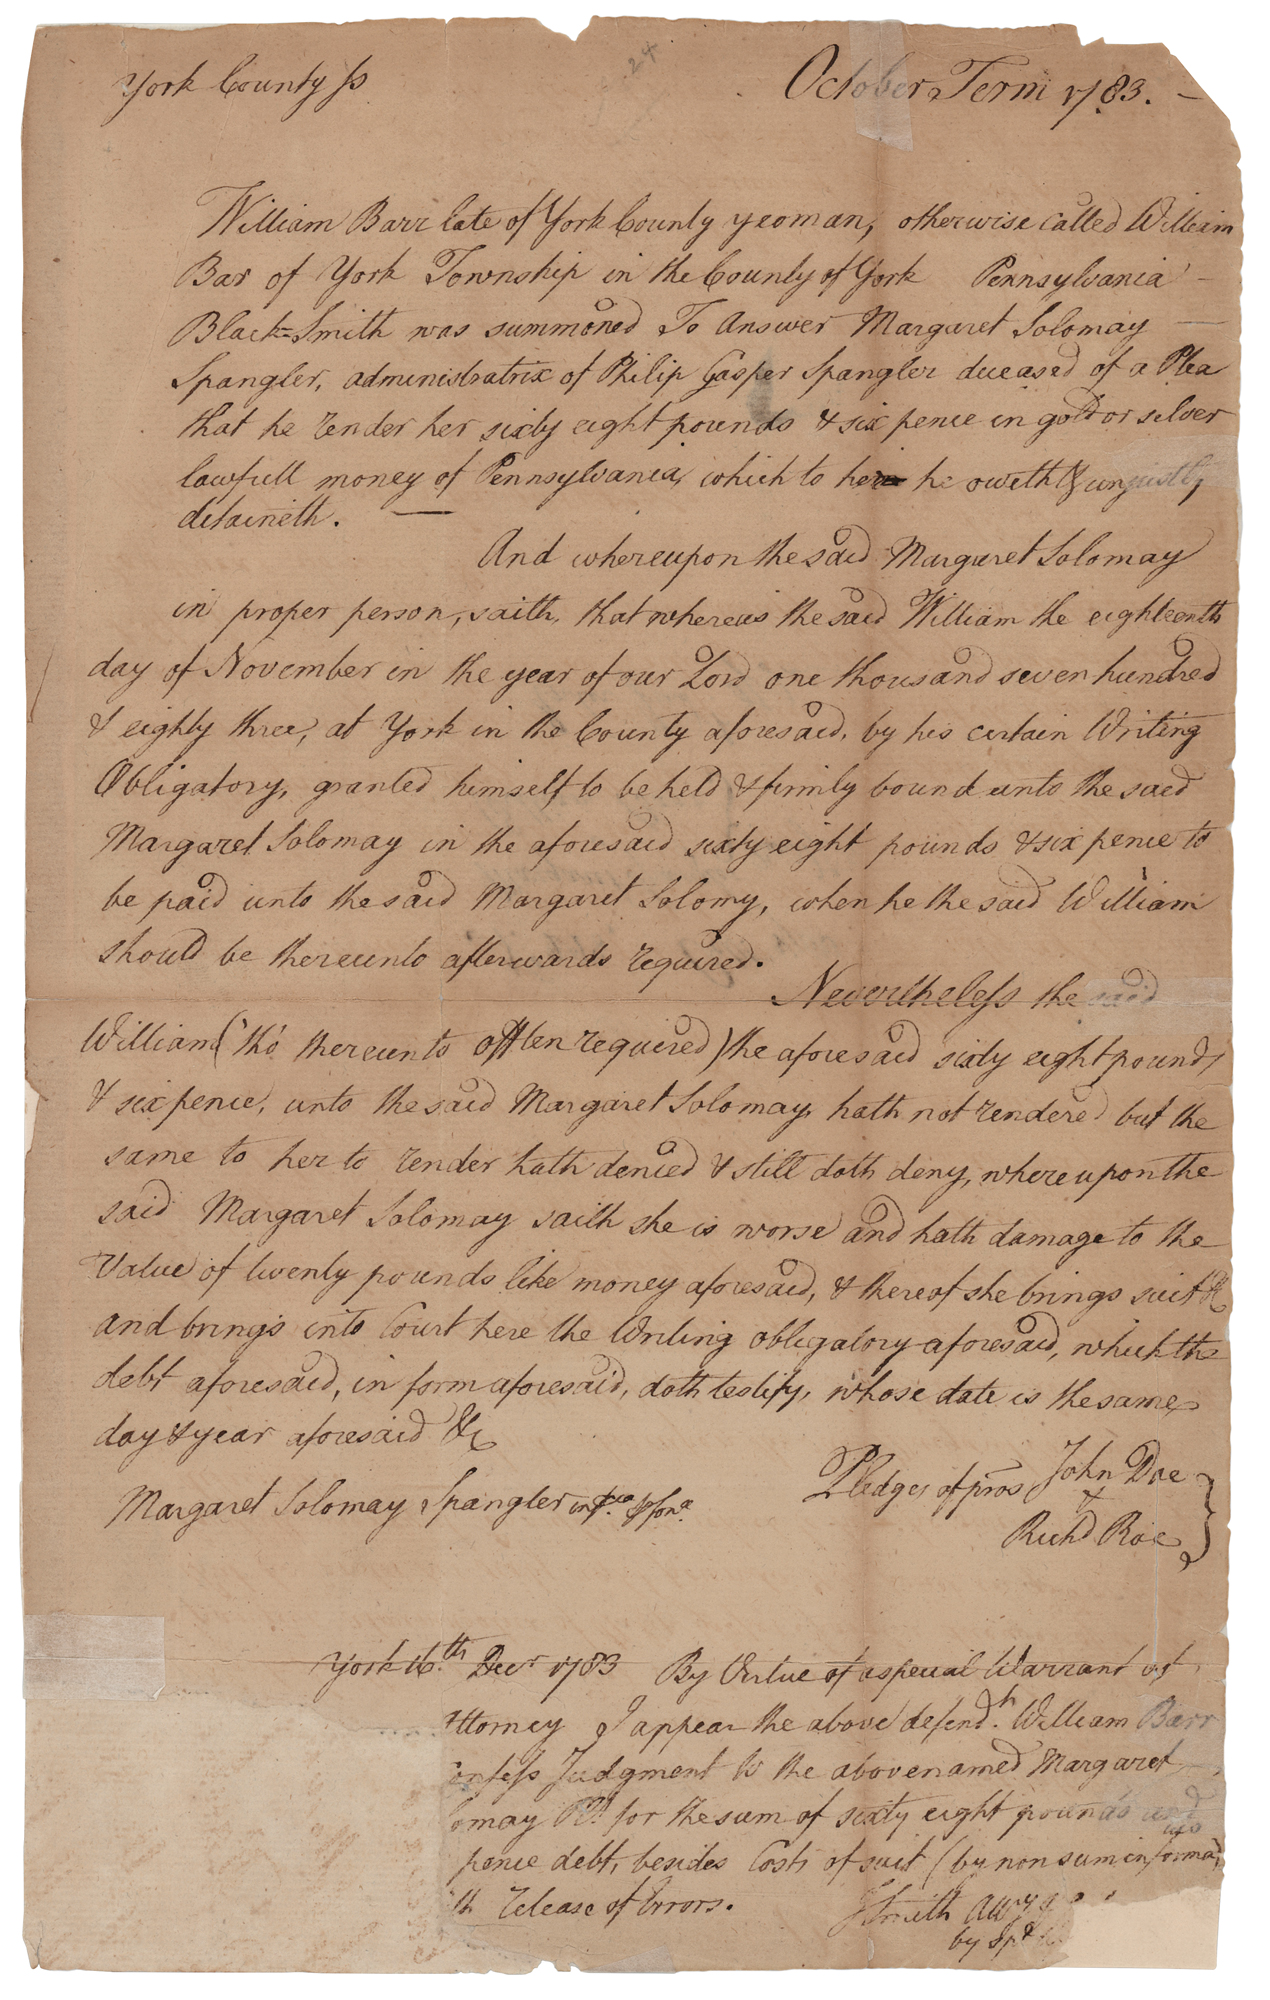 24
York County ss
October Term 1783. —
William Barr late of York County yeoman, otherwise called William
Bar of York Township in the County of York Pennsylvania —
Black=Smith was summoned To Answer Margaret Solomay —
Spangler, administratrix of Philip Casper Spangler deceased of a Plea
that he render her sixty eight pounds & six pence in gold or silver
lawfull money of Pennsylvania, which to her he oweth & unjustly
detaineth. —
And whereupon the said Margaret Solomay
in proper person, saith, that whereas the said William the eighteenth
day of November in the year of our Lord one thousand seven hundred
& eighty three, at York in the County aforesaid, by his certain Writing
Obligatory, granted himself to be held & firmly bound unto the said
Margaret Solomay in the aforesaid sixty eight pounds & six pence to
be paid unto the said Margaret Solomy, when he the said William
should be thereunto afterwards required.
Nevertheless the said
William ('tho' thereunto often required) the aforesaid sixty eight pounds
& six pence, unto the said Margaret Solomay, hath not rendered but the
same to her to render hath denied & still doth deny, whereupon the
said Margaret Solomay saith she is worse and hath damage to the
Value of twenty pounds like money aforesaid, & thereof she brings suit &c
and brings into Court here the Writing obligatory aforesaid, which the
debt aforesaid, in form aforesaid, doth testify, whose date is the same
day & year aforesaid &c
Pledges of pros John Doe
&
Richd Roe
Margaret Solomay Spangler in
York 16.th Decr 1783 By Virtue of a special Warrant of
ttorney I appear the above defendt. William Barr
onfess Judgment to the abovenamed Margaret
omay Pl. for the sum of sixty eight pounds and
pence debt, besides Costs of suit (by non sum informa
th release of Errors.
JSmith Atty
by Spl